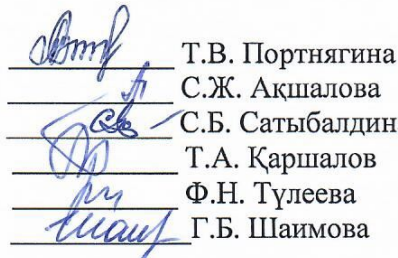 Т.В. Портнягина
С.Ж. Ақшалова
С.Б. Сатыбалдин
Т.А. Қаршалов
Ф.Н. Түлеева
Г.Б. Шаимова